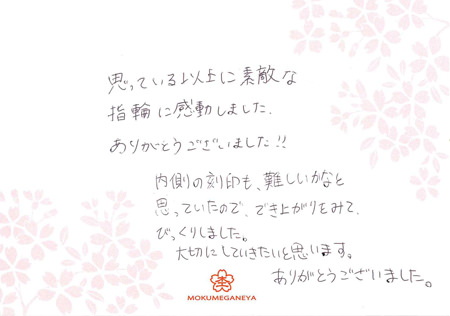 思っている以上に素敵な
指輪に感動しました.
ありがとうございました!!
内側の刻印も、難しいかなと
思っていたので、でき上がりをみて、
びっくりしました。
大切にしていきたいと思います。
ありがとうございました。
MOKUMEGANEYA